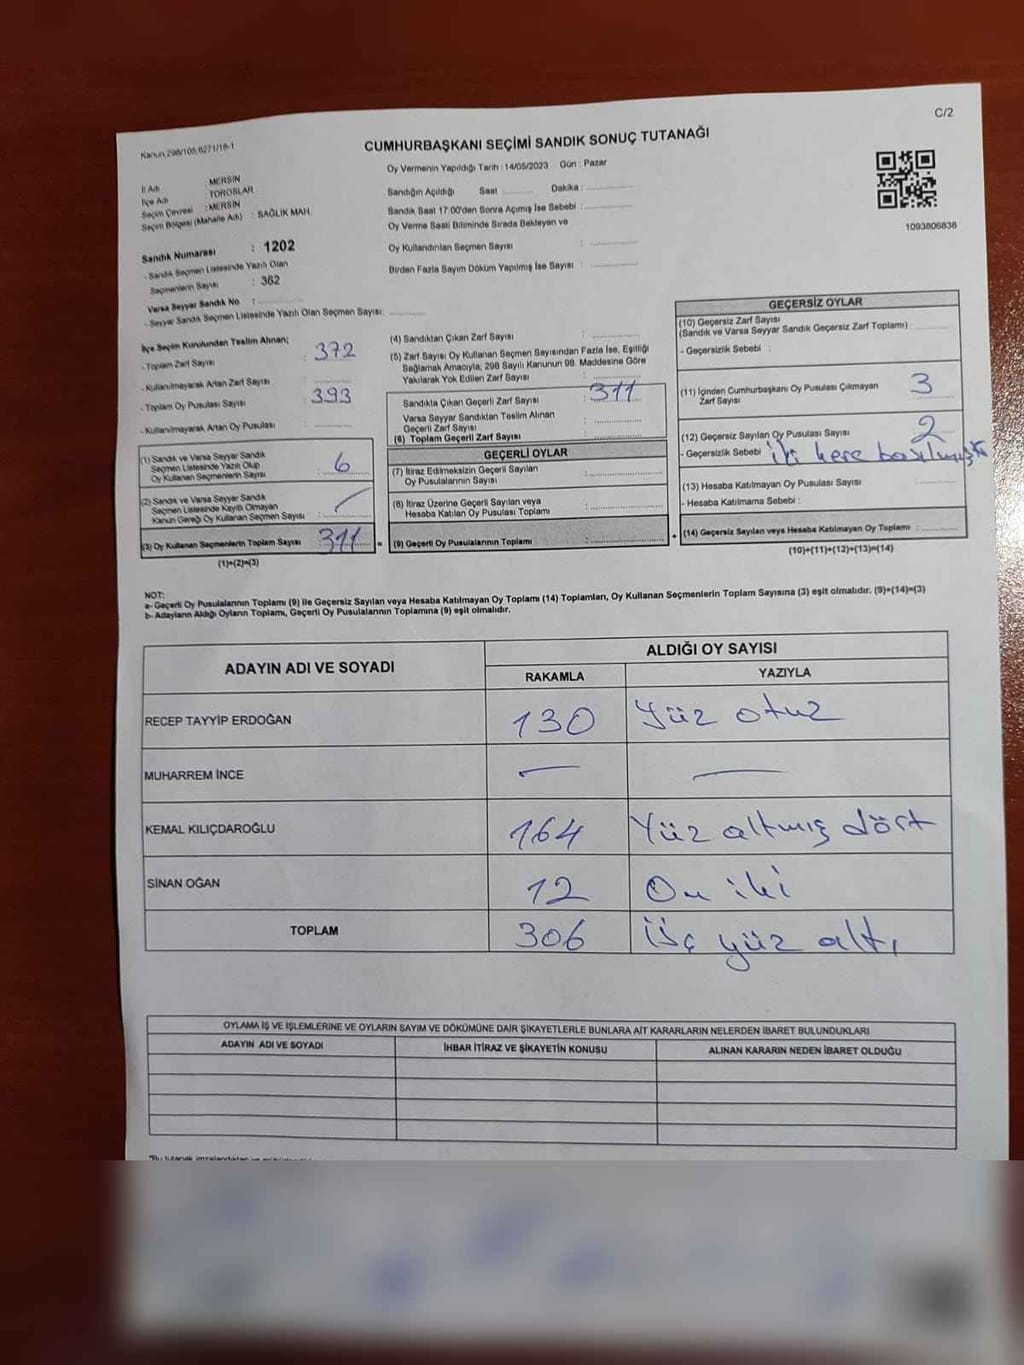 C/2
Kanun 298/105,6271/18-1
CUMHURBAŞKANI SEÇİMİ SANDIK SONUÇ TUTANAĞI
Oy Vermenin Yapıldığı Tarih : 14/05/2023 Gün : Pazar
İl Adı : MERSİN
İlçe Adı : TOROSLAR
Seçim Çevresi : MERSİN
Seçim Bölgesi (Mahalle Adı) : SAĞLIK MAH.
Sandık Numarası : 1202
- Sandık Seçmen Listesinde Yazılı Olan
Seçmenlerin Sayısı : 362
Varsa Seyyar Sandık No :
- Seyyar Sandık Seçmen Listesinde Yazılı Olan Seçmen Sayısı:
Sandığın Açıldığı Saat Dakika :
Sandık Saat 17:00'den Sonra Açımış İse Sebebi :
Oy Verme Saati Bitiminde Sırada Bekleyen ve
Oy Kullandırılan Seçmen Sayısı :
Birden Fazla Sayım Döküm Yapılmış İse Sayısı :
1093806838
İlçe Seçim Kurulundan Teslim Alınan;
- Toplam Zarf Sayısı : 372
- Kullanılmayarak Artan Zarf Sayısı :
- Toplam Oy Pusulası Sayısı : 393
- Kullanılmayarak Artan Oy Pusulası :
(1) Sandık ve Varsa Seyyar Sandık
Seçmen Listesinde Yazılı Olup
Oy Kullanan Seçmenlerin Sayısı : 6
(2) Sandık ve Varsa Seyyar Sandık
Seçmen Listesinde Kayıtlı Olmayan
Kanun Gereği Oy Kullanan Seçmen Sayısı :
(3) Oy Kullanan Seçmenlerin Toplam Sayısı : 311 =
(1)+(2)=(3)
(4) Sandıktan Çıkan Zarf Sayısı :
(5) Zarf Sayısı Oy Kullanan Seçmen Sayısından Fazla İse, Eşitliği
Sağlamak Amacıyla; 298 Sayılı Kanunun 98. Maddesine Göre
Yakılarak Yok Edilen Zarf Sayısı :
Sandıkta Çıkan Geçerli Zarf Sayısı : 311
Varsa Seyyar Sandıktan Teslim Alınan
Geçerli Zarf Sayısı :
(6) Toplam Geçerli Zarf Sayısı :
GEÇERLİ OYLAR
(7) İtiraz Edilmeksizin Geçerli Sayılan
Oy Pusulalarının Sayısı :
(8) İtiraz Üzerine Geçerli Sayılan veya
Hesaba Katılan Oy Pusulası Toplamı :
(9) Geçerli Oy Pusulalarının Toplamı : +
GEÇERSİZ OYLAR
(10) Geçersiz Zarf Sayısı
(Sandık ve Varsa Seyyar Sandık Geçersiz Zarf Toplamı) :
- Geçersizlik Sebebi :
(11) İçinden Cumhurbaşkanı Oy Pusulası Çıkmayan
Zarf Sayısı : 3
(12) Geçersiz Sayılan Oy Pusulası Sayısı : 2
- Geçersizlik Sebebi iki kere basılmıştır
(13) Hesaba Katılmayan Oy Pusulası Sayısı :
- Hesaba Katılmama Sebebi :
(14) Geçersiz Sayılan veya Hesaba Katılmayan Oy Toplamı :
(10)+(11)+(12)+(13)=(14)
NOT:
a- Geçerli Oy Pusulalarının Toplamı (9) ile Geçersiz Sayılan veya Hesaba Katılmayan Oy Toplamı (14) Toplamları, Oy Kullanan Seçmenlerin Toplam Sayısına (3) eşit olmalıdır. (9)+(14)=(3)
b- Adayların Aldığı Oyların Toplamı, Geçerli Oy Pusulalarının Toplamına (9) eşit olmalıdır.
ADAYIN ADI VE SOYADI ALDIĞI OY SAYISI
RAKAMLA YAZIYLA
RECEP TAYYİP ERDOĞAN 130 Yüz otuz
MUHARREM İNCE — —
KEMAL KILIÇDAROĞLU 164 Yüz altmış dört
SİNAN OĞAN 12 On iki
TOPLAM 306 Üç yüz altı
OYLAMA İŞ VE İŞLEMLERİNE VE OYLARIN SAYIM VE DÖKÜMÜNE DAİR ŞİKAYETLERLE BUNLARA AİT KARARLARIN NELERDEN İBARET BULUNDUKLARI
ADAYIN ADI VE SOYADI İHBAR İTİRAZ VE ŞİKAYETİN KONUSU ALINAN KARARIN NEDEN İBARET OLDUĞU